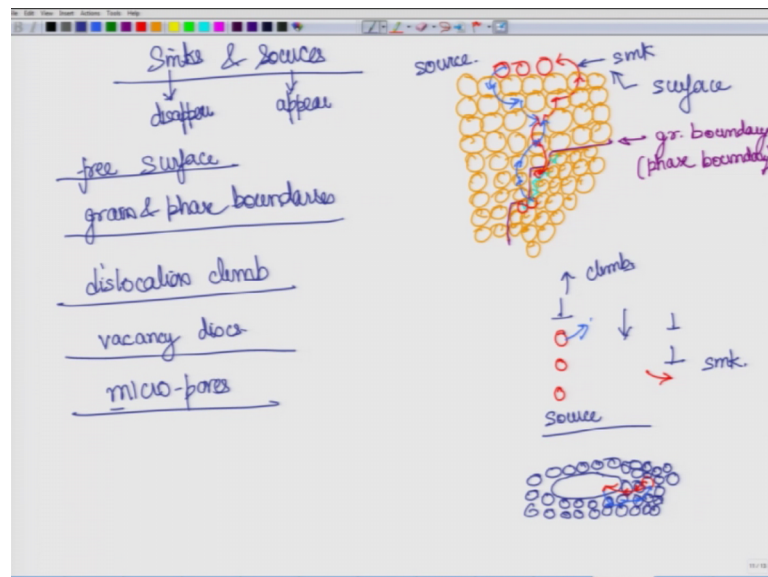 File Edit View Insert Actions Tools Help
Sinks & Sources
disappear appear
free surface
grain & phase boundaries
dislocation climb
vacancy discs
micro-pores
source.
sink
surface
gr. boundary
(phase boundary
climbs
sink.
source
11/13